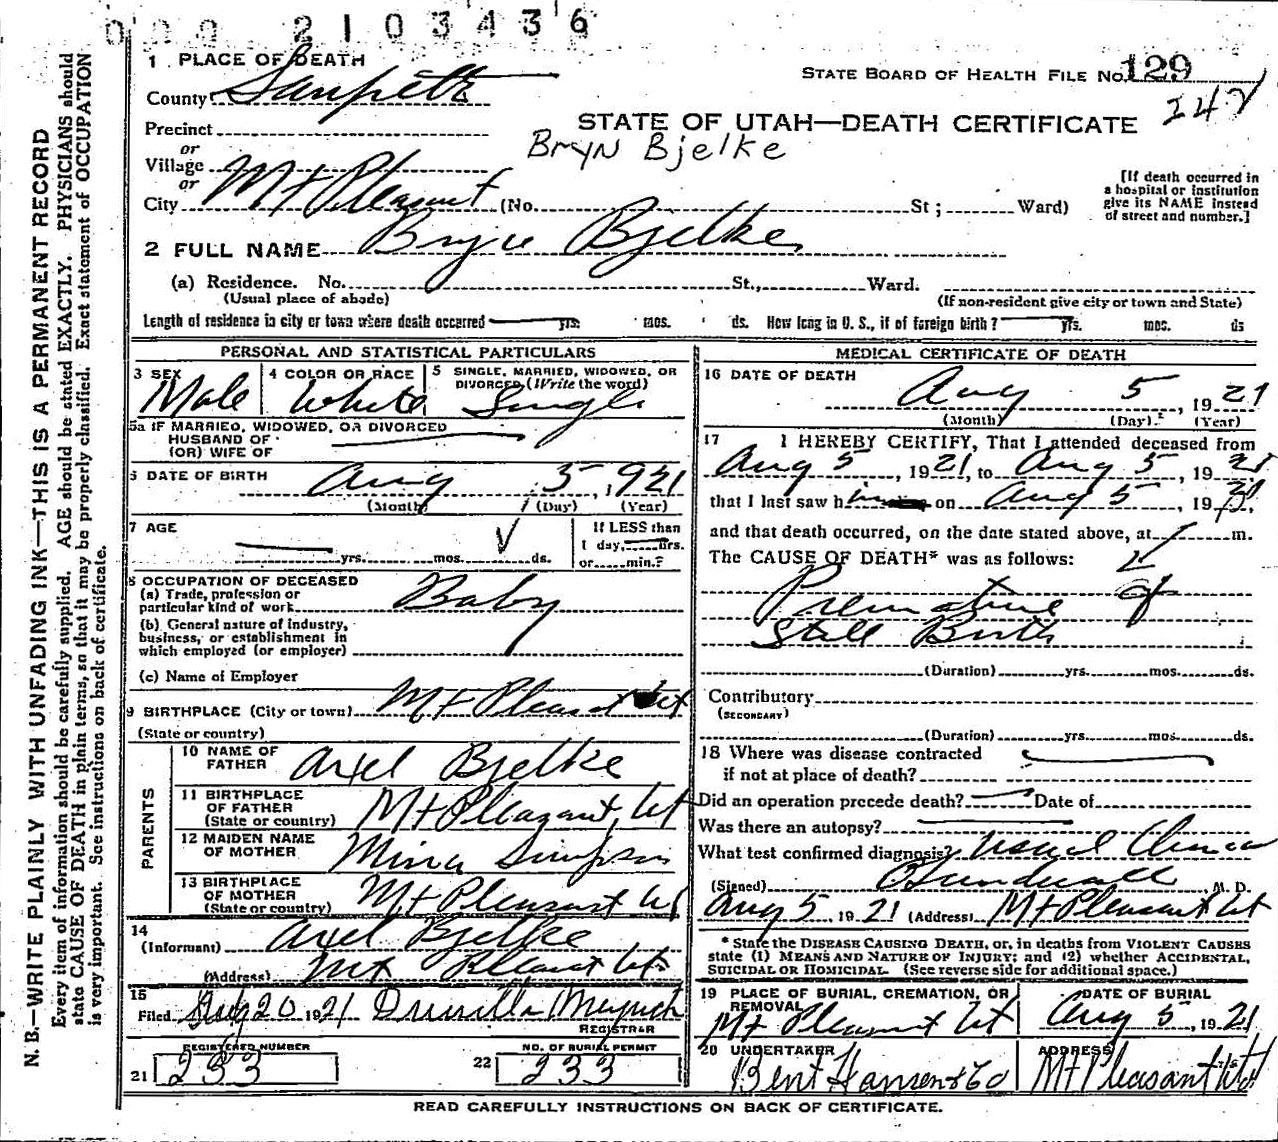 000 2103436
1 PLACE OF DEATH
STATE BOARD OF HEALTH FILE No. 129
County Sanpete
247
STATE OF UTAH—DEATH CERTIFICATE
Precinct
or
BryN Bjelke
Village
or
City Mt Pleasant (No. St; Ward)
[If death occurred in
a hospital or institution
give its NAME instead
of street and number.]
2 FULL NAME Bryce Bjelke
(a) Residence. No. St., Ward.
(Usual place of abode)
(If non-resident give city or town and State)
Length of residence in city or town where death occurred yrs. mos. ds. How long in U. S., if of foreign birth? yrs. mos. ds
PERSONAL AND STATISTICAL PARTICULARS
3 SEX
Male
4 COLOR OR RACE
White
5 SINGLE, MARRIED, WIDOWED, OR
DIVORCED, (Write the word)
Single
5a IF MARRIED, WIDOWED, OR DIVORCED
HUSBAND OF
(OR) WIFE OF
6 DATE OF BIRTH Aug 5, 1921
(Month) (Day) (Year)
7 AGE
yrs. mos. ds.
If LESS than
1 day, hrs.
or min.?
8 OCCUPATION OF DECEASED
(a) Trade, profession or
particular kind of work Baby
(b) General nature of industry,
business, or establishment in
which employed (or employer)
(c) Name of Employer
9 BIRTHPLACE (City or town) Mt Pleasant Ut
(State or country)
PARENTS
10 NAME OF
FATHER Axel Bjelke
11 BIRTHPLACE
OF FATHER
(State or country) Mt Pleasant, Ut
12 MAIDEN NAME
OF MOTHER Mina Simpson
13 BIRTHPLACE
OF MOTHER
(State or country) Mt Pleasant Ut
14
(Informant) Axel Bjelke
(Address) Mt Pleasant Ut
15
Filed Aug 20 1921 Druscilla
REGISTRAR
REGISTERED NUMBER
21 233
NO. OF BURIAL PERMIT
22 233
MEDICAL CERTIFICATE OF DEATH
16 DATE OF DEATH
Aug 5, 1921
(Month) (Day) (Year)
17 I HEREBY CERTIFY, That I attended deceased from
Aug 5, 1921, to Aug 5, 1921
that I last saw him on Aug 5, 1921,
and that death occurred, on the date stated above, at m.
The CAUSE OF DEATH* was as follows:
Premature
Still Birth
(Duration) yrs. mos. ds.
Contributory
(SECONDARY)
(Duration) yrs. mos. ds.
18 Where was disease contracted
if not at place of death?
Did an operation precede death? Date of
Was there an autopsy?
What test confirmed diagnosis? Usual
(Signed) M. D.
Aug 5, 1921 (Address) Mt Pleasant Ut
* State the DISEASE CAUSING DEATH, or, in deaths from VIOLENT CAUSES
state (1) MEANS AND NATURE OF INJURY; and (2) whether ACCIDENTAL,
SUICIDAL OR HOMICIDAL. (See reverse side for additional space.)
19 PLACE OF BURIAL, CREMATION, OR
REMOVAL
Mt Pleasant Ut
DATE OF BURIAL
Aug 5, 1921
20 UNDERTAKER
Bent Hansen & Co
ADDRESS
Mt Pleasant Ut
READ CAREFULLY INSTRUCTIONS ON BACK OF CERTIFICATE.
N. B.—WRITE PLAINLY WITH UNFADING INK—THIS IS A PERMANENT RECORD
Every item of information should be carefully supplied. AGE should be stated EXACTLY. PHYSICIANS should
state CAUSE OF DEATH in plain terms, so that it may be properly classified. Exact statement of OCCUPATION
is very important. See instructions on back of certificate.